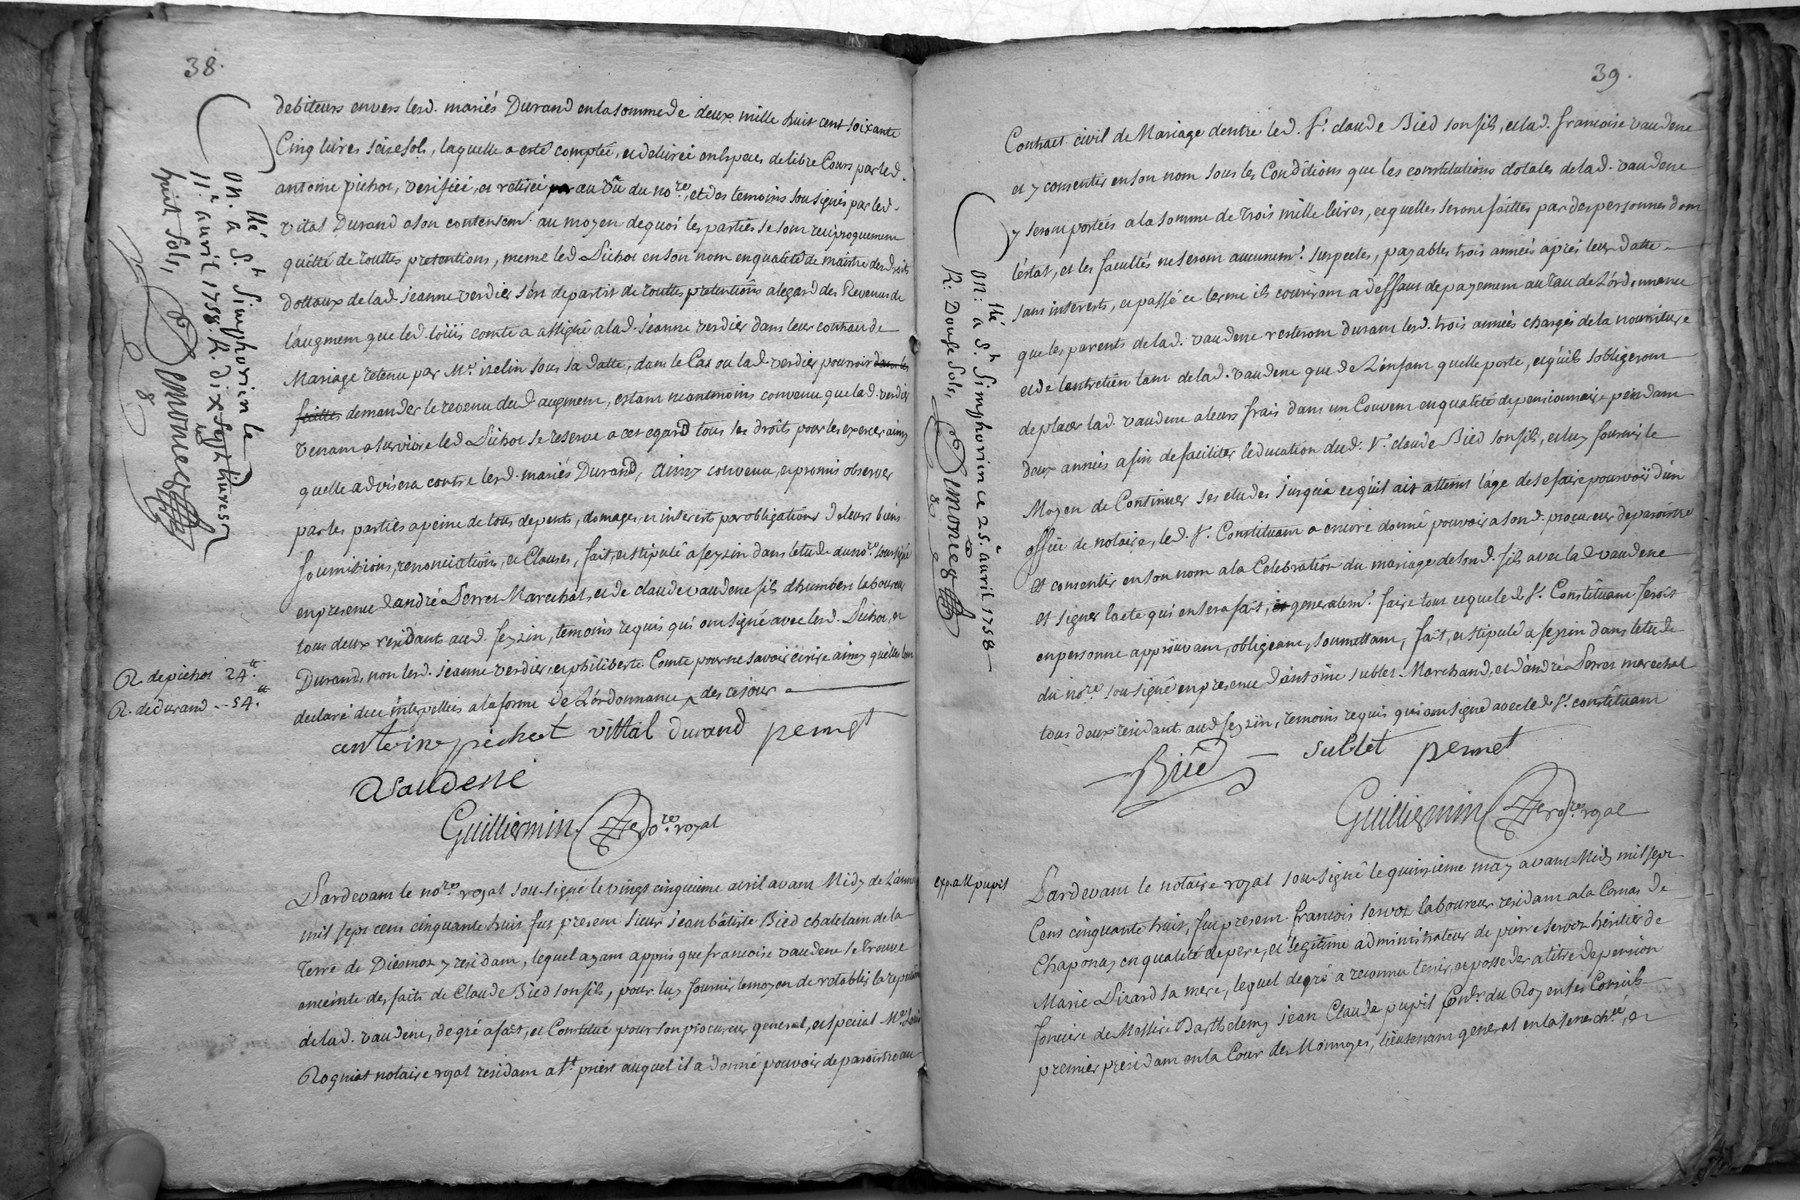 38.
debiteurs envers lesd. mariés Durand en la somme de deux mille huit cent soixante
Cinq livres seize sols, laquelle a esté comptée, et delivrée en Espèces de libre Cours par led.
antoine pichot, verifiée, et retirée par au vû du nore, et des temoins sousignés par led.
vital Durand a son contentemt. au moyen de quoi les parties se sont reciproquement
quitté de touttes pretentions, meme led Pichot en son nom en qualité de maitre des droits
dottaux de lad. jeanne verdier s'est departit de touttes pretentions a legard des Revenus de
l'augment que led. loüis comte a assigné a lad. jeanne verdier dans leur contrat de
Mariage retenu par Me. izelin sous sa datte, dans le Cas ou lad. verdier pourroit dans les
suittes demander le revenu dud augment, estant neantmoins convenu que lad. verdier
venant a survivre led Pichot se reserve a cet egard tous ses droits pour les exercer ainsy
quelle advisera contre lesd. mariés Durand, ainsy convenu, et promis observer
par les parties a peine de tous depents, domages, et interests par obligations de leurs biens
soumissions, renonciations, et Clauses, fait, et stipulé a feyzin dans letude du nore sousigné
en presence d'andré Perret Marechal, et de claude vaudene fils d'humbert laboureur
tous deux residants aud. feyzin, temoins requis qui ont signé avec lesd. Pichot, et
Durand, non lesd. jeanne verdier, et philiberte Comte pour ne savoir écrire ainsy quelles l'ont
declaré deüe interpellées a la forme de L'ordonnance des ce jour
antoine pichot vittal durand perret
Vaudene
Guilliermin nore. royal
R. de pichot 24tt.
R. de durand -- 54tt.
Onllé a St. Simphorien le
11e. avril 1758 R. dix sept livres
huit sols,
Simonet
Pardevant le nore. royal sousigné le vingt cinquieme avril avant Midy de L'année
mil sept cent cinquante huit fut present sieur jean batiste Bied chatelain de la
Terre de Diesmoz y residant, lequel ayant appris que francoise vaudene se trouve
enceinte des faits de Claude Bied son fils, pour luy fournir le moyen de retablir la reputation
de lad. vaudene, de gré a fait, et Constitué pour son procureur general, et special Me. Louis
Rogniat notaire royal residant a St. priest auquel il a donné pouvoir de paroistre au
39.
Contrat civil de Mariage dentre led. Sr. claude Bied son fils, et lad. francoise vaudene
et y consentir en son nom sous les Conditions que les constitutions dotales de lad. vaudene
y seront portées a la somme de trois mille livres, et quelles seront faittes par des personnes dont
l'estat, et les facultés ne seront aucunemt. suspectes, payables trois années après leur datte
sans interests, et passé ce terme ils couriront a deffaut de payement au tau de L'ordonnance
que les parents de lad. vaudene resteront durant lesd. trois années chargés de la nourriture
et de lentretien tant de lad. vaudene que de L'enfant quelle porte, et qu'ils s'obligeront
de placer lad. vaudene a leurs frais dans un Couvent en qualité de pensionnaire pendant
deux années afin de faciliter leducation dud. Sr. claude Bied son fils, et luy fournir le
Moyen de Continuer ses etudes jusqu'a ce quil ait atteint l'age de se faire pourvoir d'un
office de notaire, led. Sr. Constituant a encore donné pouvoir a sond. procureur de paroistre
et consentir en son nom a la Celebration du mariage de sond. fils avec lad vaudene
et signer lacte qui en sera fait, et generalemt. faire tout ce que led Sr. Constituant feroit
en personne approuvant, obligeant, soumettant, fait, et stipulé a feyzin dans letude
du nore sousigné en presence d'antoine sublet Marchand, et d'andré Perret marechal
tous deux residants aud feyzin, temoins requis qui ont signé avec led Sr. constituant
Bied sublet perret
Guilliermin nore. royal
Onllé: a St. Simphorien ce 25e. avril 1758
R: Douse sols,
Simonet
exp. a M pupil
Pardevant le notaire royal sousigné le quinzieme may avant Midy mil sept
Cent cinquante huit, fut present francois servoz laboureur residant a la Comas de
Chaponay en qualité de pere, et legitime administrateur de pierre servoz héritier de
Marie Pizard sa mere, lequel de gré a reconnu tenir, et posseder a titre de pension
fonciere de Messire Barthelemy jean Claude pupil Conr. du Roy en ses Conseils
premier president en la Cour des Monnoyes, lieutenant general en la senechée, et